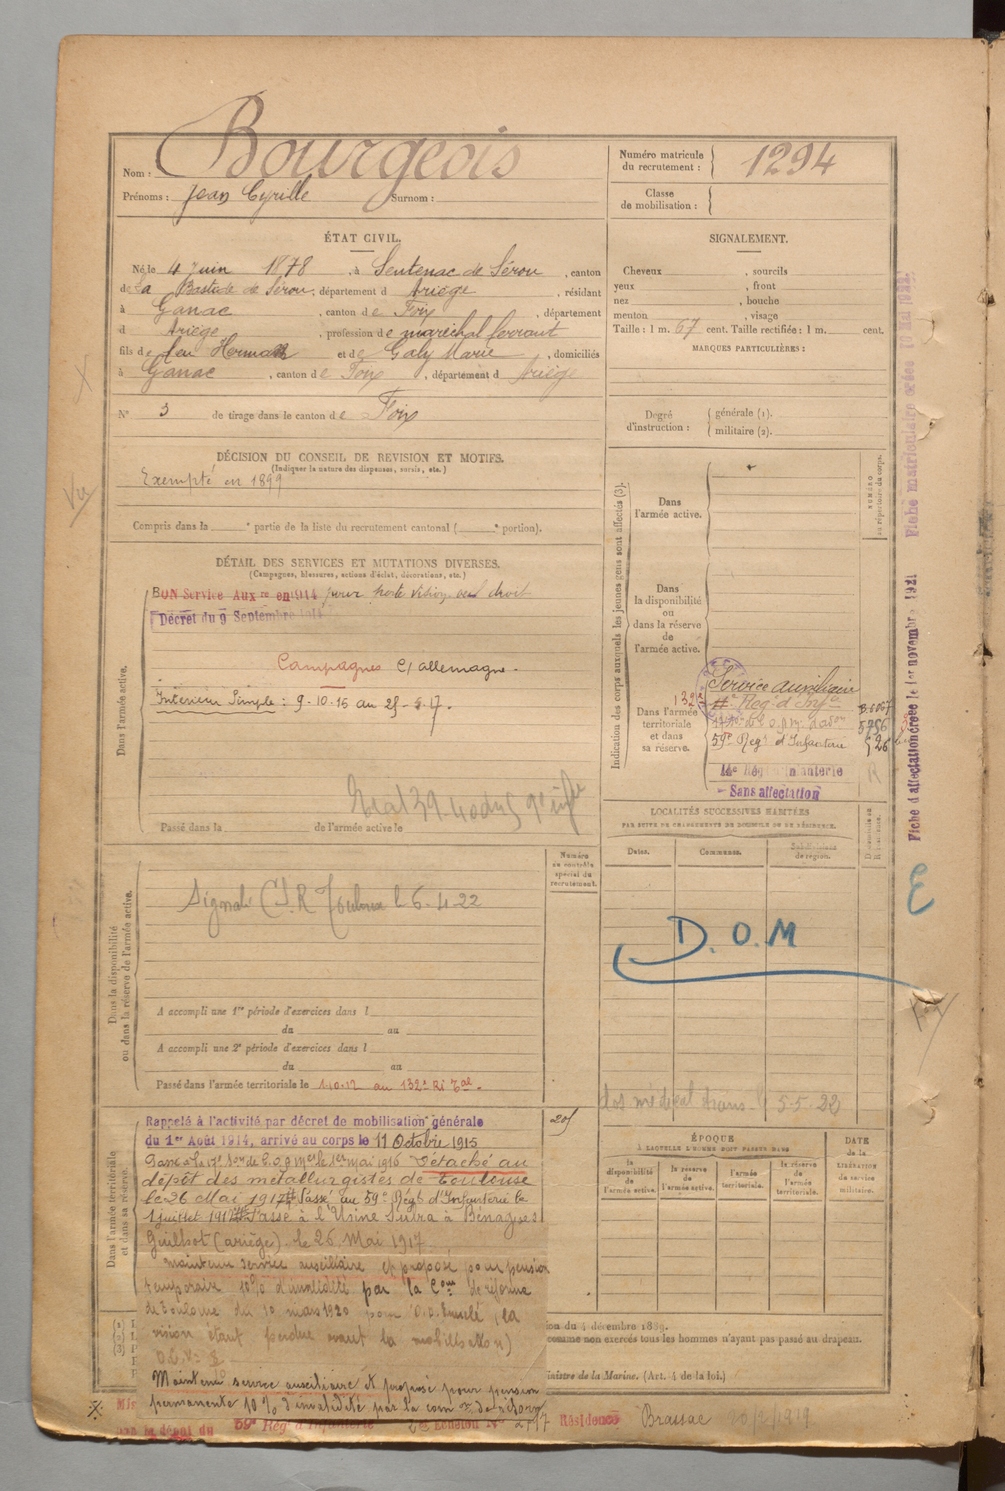 Nom : Bourgeois
Prénoms : Jean Cyrille Surnom :
Numéro matricule du recrutement : 1294
Classe de mobilisation :
ÉTAT CIVIL.
Né le 4 Juin 1878 , à Sentenac de Sérou , canton
de La Bastide de Sérou, département d Ariège , résidant
à Ganac , canton de Foix , département
d Ariège , profession de maréchal ferrant
fils de feu et de Galy Marie , domiciliés
à Ganac , canton de Foix , département d Ariège
N° 3 de tirage dans le canton de Foix
SIGNALEMENT.
Cheveux , sourcils
yeux , front
nez , bouche
menton , visage
Taille : 1 m. 67 cent. Taille rectifiée : 1 m. cent.
MARQUES PARTICULIÈRES :
Degré d'instruction : générale (1).
militaire (2).
DÉCISION DU CONSEIL DE REVISION ET MOTIFS.
(Indiquer la nature des dispenses, sursis, etc.)
Exempté en 1899
Compris dans la e partie de la liste du recrutement cantonal ( e portion).
DÉTAIL DES SERVICES ET MUTATIONS DIVERSES.
(Campagnes, blessures, actions d'éclat, décorations, etc.)
BON Service Aux re en 1914 pour perte vision œil droit
Décret du 9 Septembre 1914
Campagnes C/ allemagne.
Intérieur Simple : 9-10-15 au 25-5-17.
Passé dans la de l'armée active le
Dans l'armée active.
Indication des corps auxquels les jeunes gens sont affectés (3).
Dans l'armée active.
Dans la disponibilité ou dans la réserve de l'armée active.
Dans l'armée territoriale et dans sa réserve.
Service auxiliaire
132e
59e Regt d'Infanterie
Sans affectation
NUMÉRO au répertoire du corps.
Fiche matriculaire créée
Fiche d'affectation créée le 1er novembre 1921
LOCALITÉS SUCCESSIVES HABITÉES
PAR SUITE DE CHANGEMENTS DE DOMICILE OU DE RÉSIDENCE.
Dates. Communes. Subdivisions de région.
Numéro au contrôle spécial du recrutement.
Dans la disponibilité ou dans la réserve de l'armée active.
Toulouse le 6.4.22
D.O.M
E
A accompli une 1re période d'exercices dans l
du au
A accompli une 2e période d'exercices dans l
du au
Passé dans l'armée territoriale le 1.10.12 au 132e Ri Tal.
dos médical trans. le 5.5.22
Dans l'armée territoriale et dans sa réserve.
Rappelé à l'activité par décret de mobilisation générale
du 1er Août 1914, arrivé au corps le 11 Octobre 1915
le 1er mai 1916 Détaché au
dépôt des métallurgistes de Toulouse
le 26 Mai 1917 Passé au 59e Régt d'Infanterie le
1 juillet 1917 Passé à l'Usine Sutra à Bénazet
(ariège). le 26 Mai 1917
maintenu service auxiliaire et proposé pour pension
temporaire 10% d'invalidité par la Con de réforme
de Toulouse du 10 mars 1920 pour (la
vision étant perdue avant la mobilisation)
Maintenu service auxiliaire et proposé pour pension
permanente 10% d'invalidité par la com on de réforme
ÉPOQUE
À LAQUELLE L'HOMME DOIT PASSER DANS
la disponibilité de l'armée active. la réserve de l'armée active. l'armée territoriale. la réserve de l'armée territoriale.
DATE de la LIBÉRATION du service militaire.
du 4 décembre 1889.
comme non exercés tous les hommes n'ayant pas passé au drapeau.
ministre de la Marine. (Art. 4 de la loi.)
59e Reg d'Infanterie Echelon N° Résidence Brassac